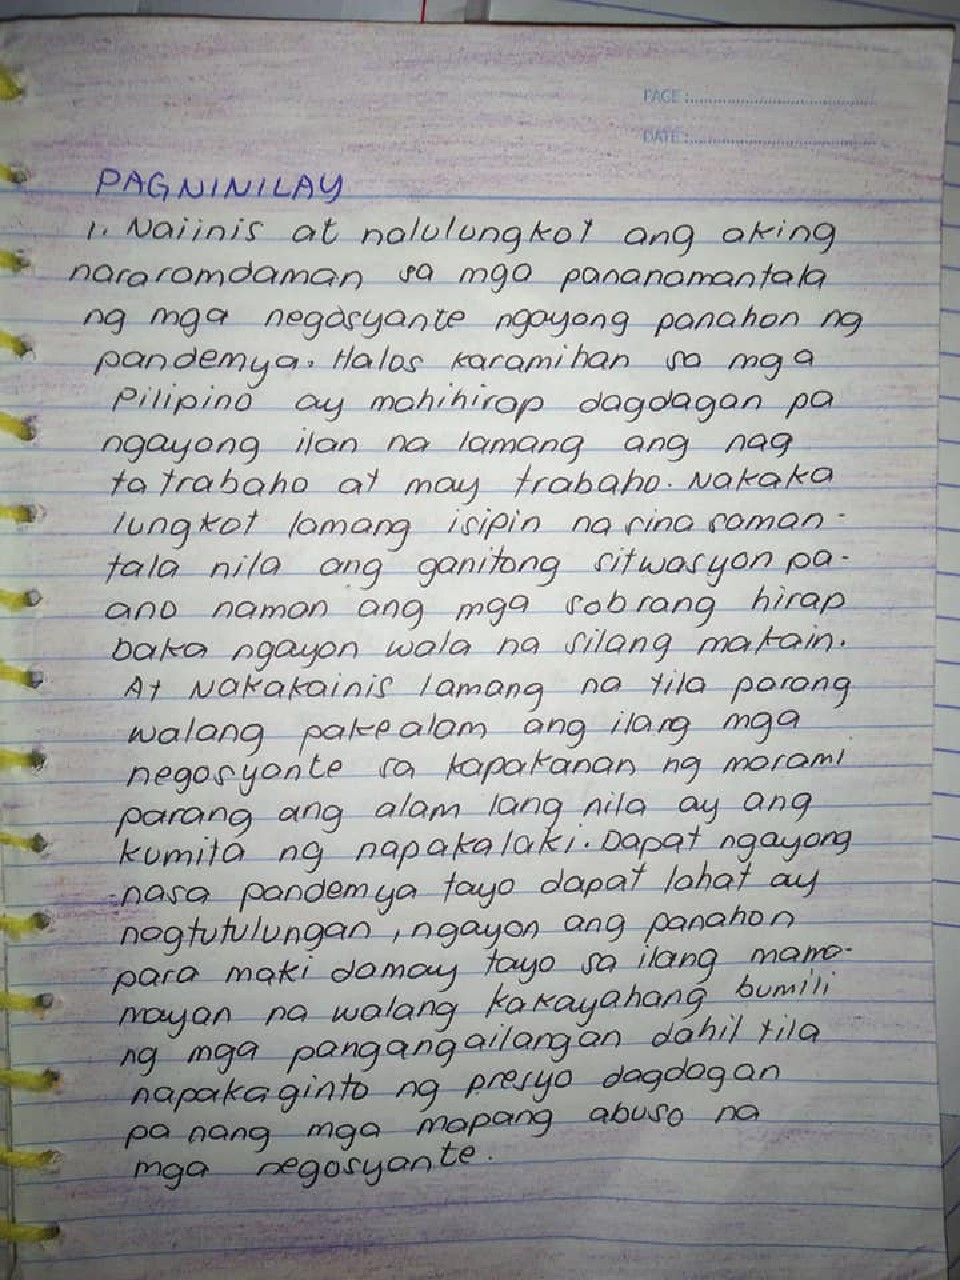 PAGE :
DATE :
PAGNINILAY
1. Naiinis at nalulungkot ang aking
nararamdaman sa mga pananamantala
ng mga negosyante ngayong panahon ng
pandemya. Halos karamihan sa mga
Pilipino ay mahihirap dagdagan pa
ngayong ilan na lamang ang nag
ta trabaho at may trabaho. Nakaka
lungkot lamang isipin na sina saman-
tala nila ang ganitong sitwasyon pa-
ano naman ang mga sobrang hirap
baka ngayon wala na silang makain.
At Nakakainis lamang na tila parang
walang pakealam ang ilang mga
negosyante sa kapakanan ng marami
parang ang alam lang nila ay ang
kumita ng napakalaki. Dapat ngayong
nasa pandemya tayo dapat lahat ay
nagtutulungan, ngayon ang panahon
para maki damay tayo sa ilang mama-
mayan na walang kakayahang bumili
ng mga pangangailangan dahil tila
napakaginto ng presyo dagdagan
pa nang mga mapang abuso na
mga negosyante.